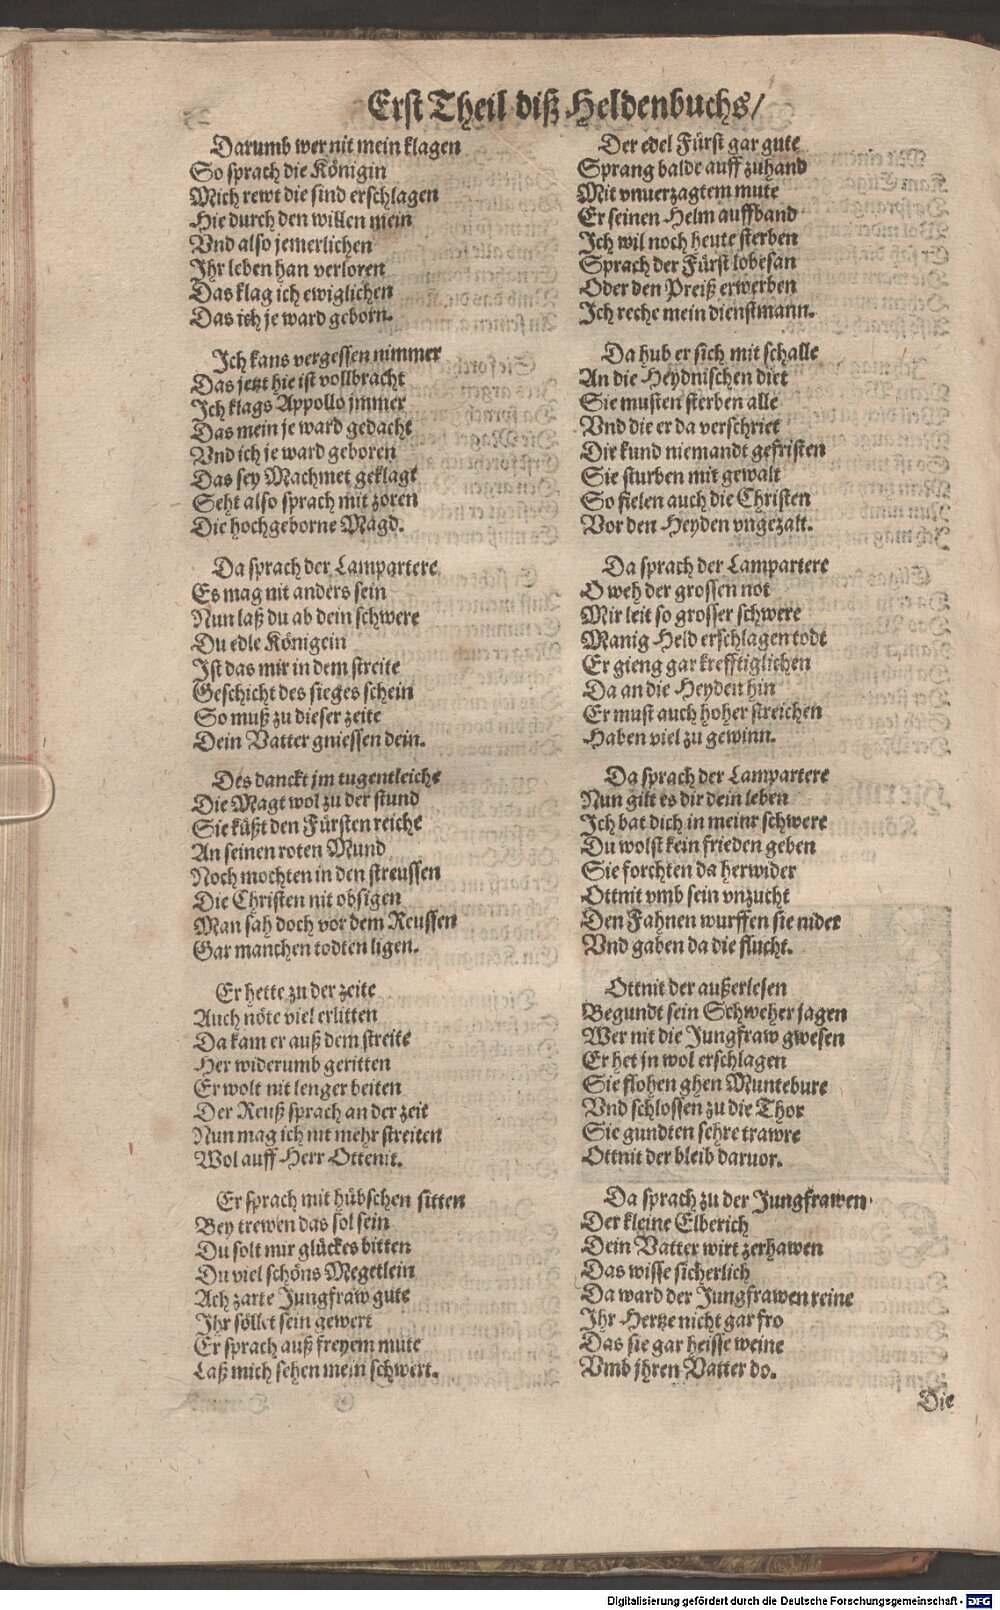 Erst Theil diß Heldenbuchs/
Darumb wer nit mein klagen
So sprach die Königin
Mich rewt die sind erschlagen
Hie durch den willen mein
Vnd also jemerlichen
Ihr leben han verloren
Das klag ich ewiglichen
Das ich je ward geborn.
Ich kans vergessen nimmer
Das jetzt hie ist vollbracht
Ich klags Appollo jmmer
Das mein je ward gedacht
Vnd ich je ward geboren
Das sey Machmet geklagt
Seht also sprach mit zoren
Die hochgeborne Magd.
Da sprach der Lampartere
Es mag nit anders sein
Nun laß du ab dein schwere
Du edle Königein
Ist das mir in dem streite
Geschicht des sieges schein
So muß zu dieser zeite
Dein Vatter gniessen dein.
Des danckt jm tugentleiche
Die Magt wol zu der stund
Sie küßt den Fürsten reiche
An seinen roten Mund
Noch mochten in den streussen
Die Christen nit obsigen
Man sah doch vor dem Reussen
Gar manchen todten ligen.
Er hette zu der zeite
Auch nöte viel erlitten
Da kam er auß dem streite
Her widerumb geritten
Er wolt nit lenger beiten
Der Reuß sprach an der zeit
Nun mag ich nit mehr streiten
Wol auff Herr Ottenit.
Er sprach mit hübschen sitten
Bey trewen das sol sein
Du solt mir glückes bitten
Du viel schöns Megetlein
Ach zarte Jungfraw gute
Ihr söllet sein gewert
Er sprach auß freyem mute
Laß mich sehen mein schwert.
Der edel Fürst gar gute
Sprang balde auff zuhand
Mit vnuerzagtem mute
Er seinen Helm auffband
Ich wil noch heute sterben
Sprach der Fürst lobesan
Oder den Preiß erwerben
Ich reche mein dienstmann.
Da hub er sich mit schalle
An die Heydnischen diet
Sie musten sterben alle
Vnd die er da verschriet
Die kund niemandt gefristen
Sie sturben mit gewalt
So fielen auch die Christen
Vor den Heyden vngezalt.
Da sprach der Lampartere
O weh der grossen not
Mir leit so grosser schwere
Manig Held erschlagen todt
Er gieng gar krefftiglichen
Da an die Heyden hin
Er must auch hoher streichen
Haben viel zu gewinn.
Da sprach der Lampartere
Nun gilt es dir dein leben
Ich bat dich in meinr schwere
Du wolst kein frieden geben
Sie forchten da herwider
Ottnit vmb sein vnzucht
Den Fahnen wurffen sie nider
Vnd gaben da die flucht.
Ottnit der außerlesen
Begundt sein Schweher jagen
Wer nit die Jungfraw gwesen
Er het jn wol erschlagen
Sie flohen ghen Muntebure
Vnd schlossen zu die Thor
Sie gundten sehre trawre
Ottnit der bleib daruor.
Da sprach zu der Jungfrawen
Der kleine Elberich
Dein Vatter wirt zerhawen
Das wisse sicherlich
Da ward der Jungfrawen reine
Ihr Hertze nicht gar fro
Das sie gar heisse weine
Vmb jhren Vatter do.
Die
Digitalisierung gefördert durch die Deutsche Forschungsgemeinschaft - DFG